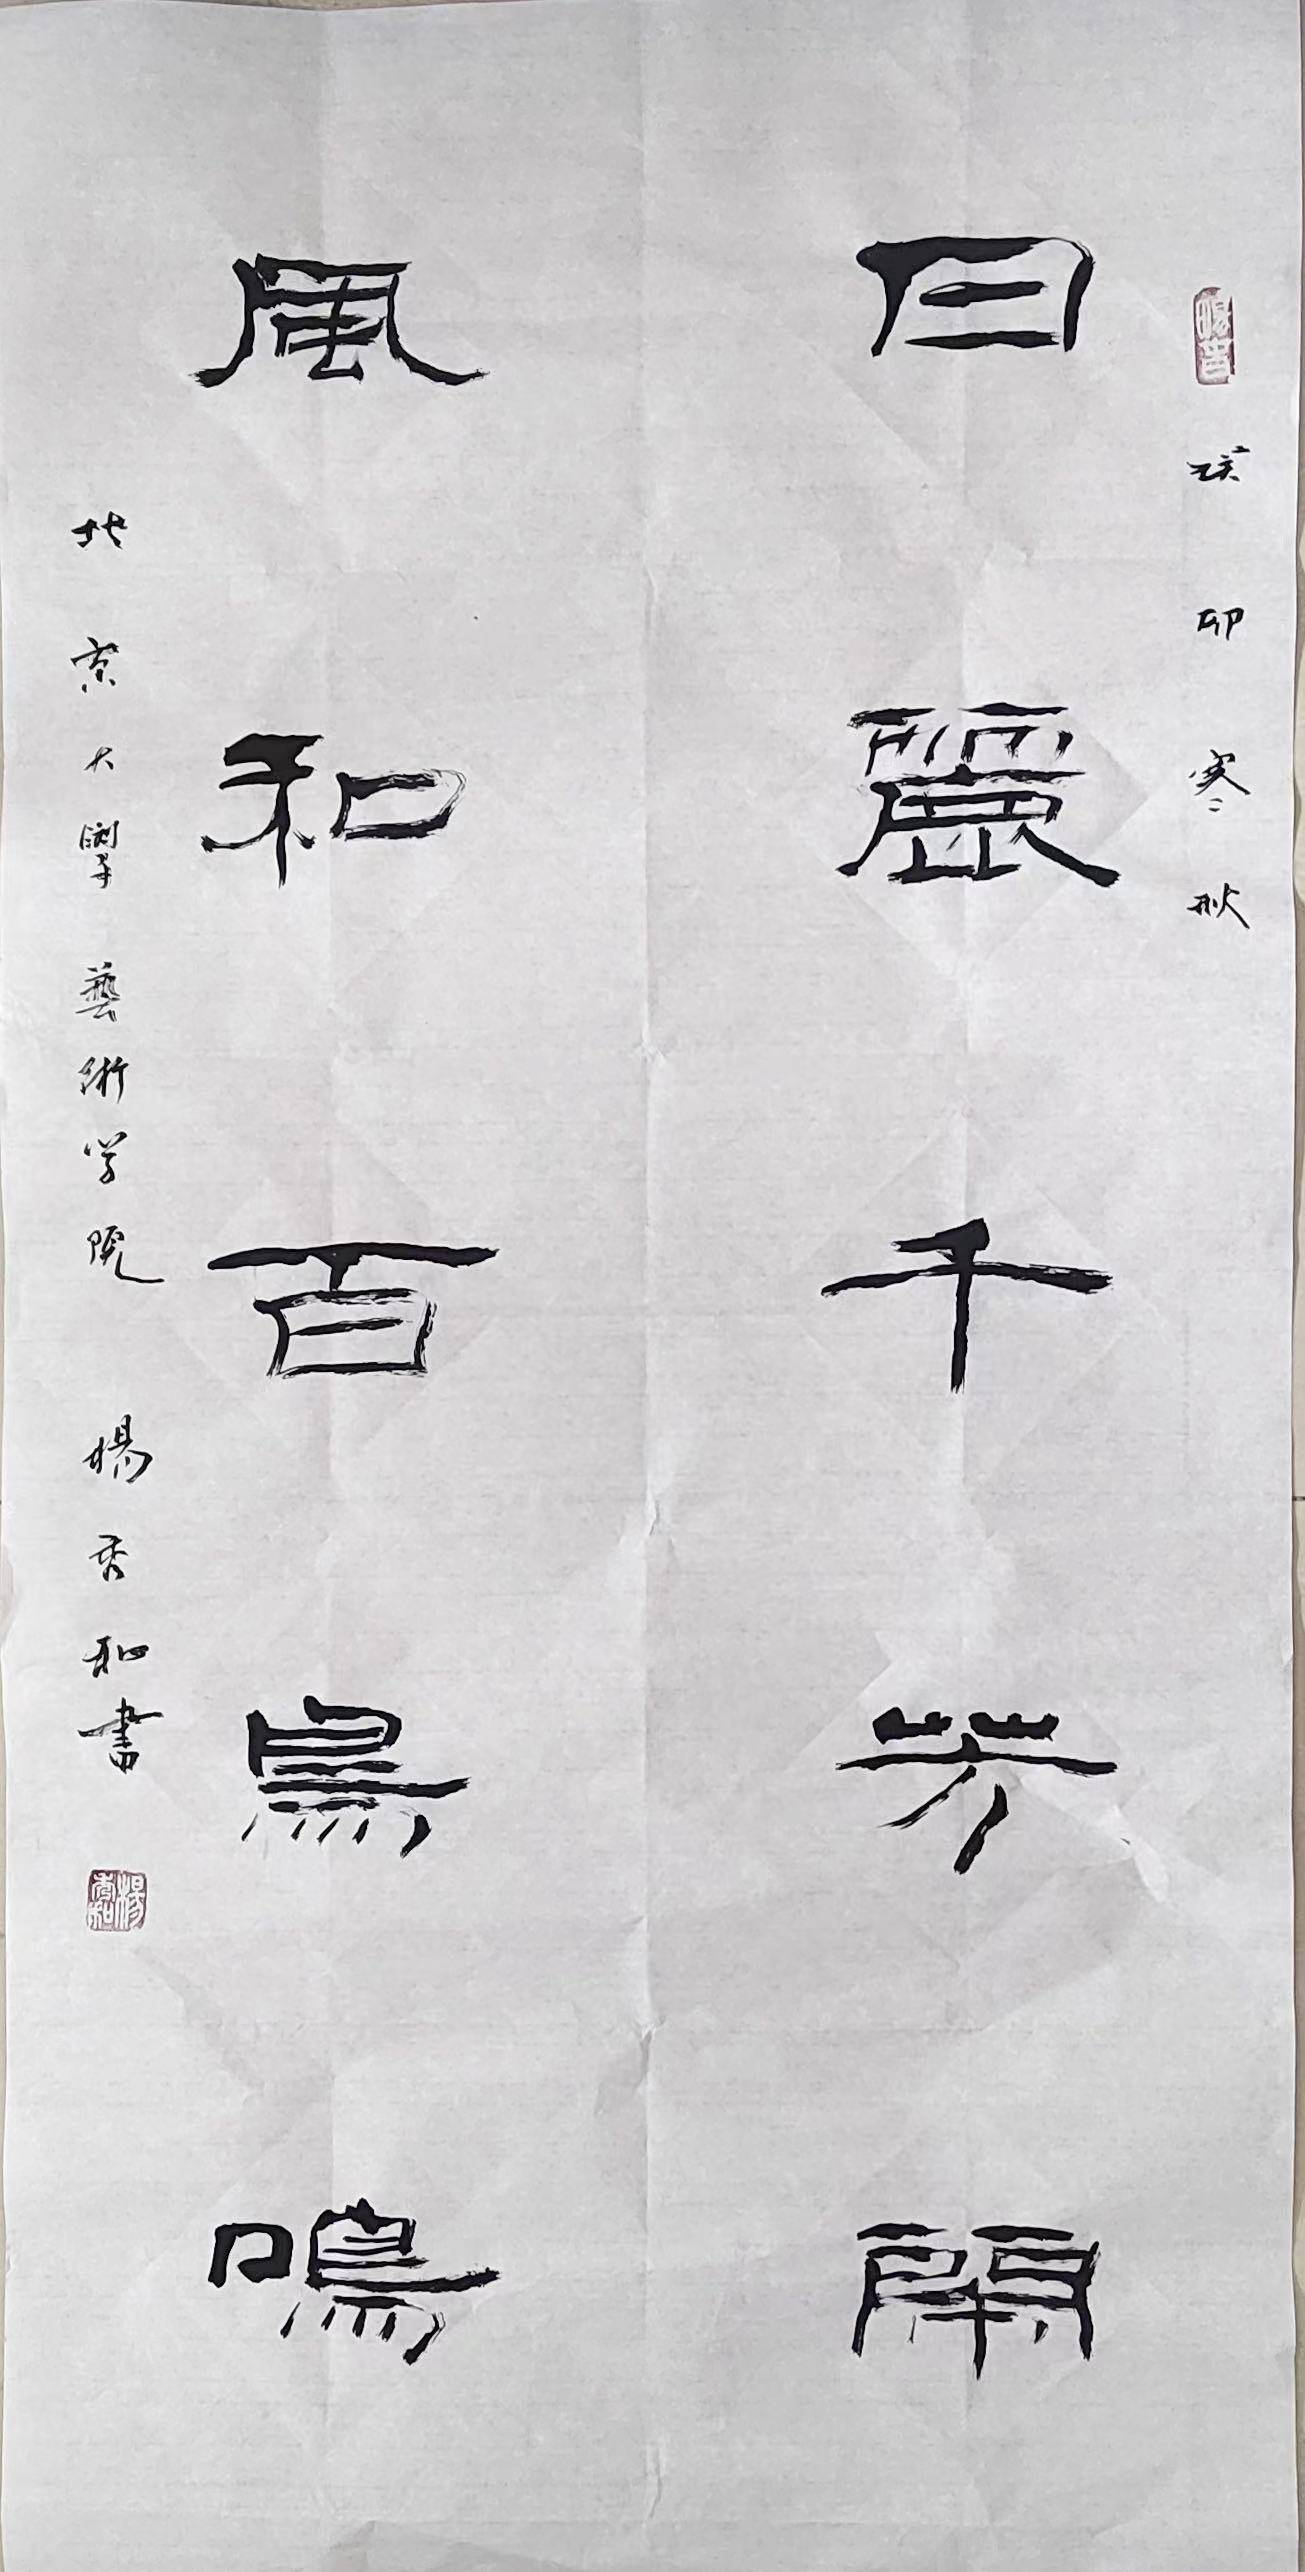 癸卯寒秋
日麗千芳閑
風和百鳥鳴
北京大學藝術学院 楊秀和書
楊秀和